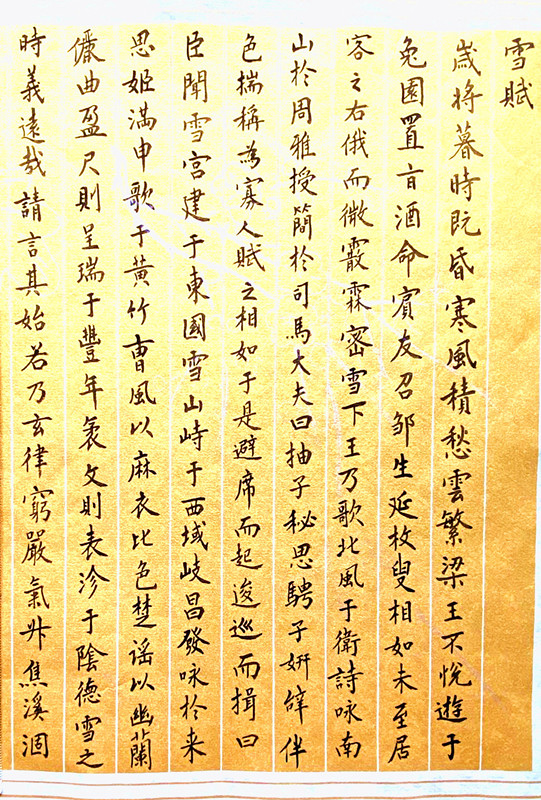 雪賦
歲將暮時旣昏寒風積愁雲繁梁王不悅遊于
兔園置旨酒命賓友召鄒生延枚叟相如未至居
客之右俄而微霰霖密雪下王乃歌北風于衛詩咏南
山於周雅授簡於司馬大夫曰抽子秘思騁子妍辭侔
色揣稱為寡人賦之相如于是避席而起逡巡而揖曰
臣聞雪宮建于東國雪山峙于西域岐昌發咏於来
思姬滿申歌于黃竹曹風以麻衣比色楚謡以幽蘭
儷曲盈尺則呈瑞于豐年袤丈則表沴于陰德雪之
時義遠哉請言其始若乃玄律窮嚴氣升焦溪涸